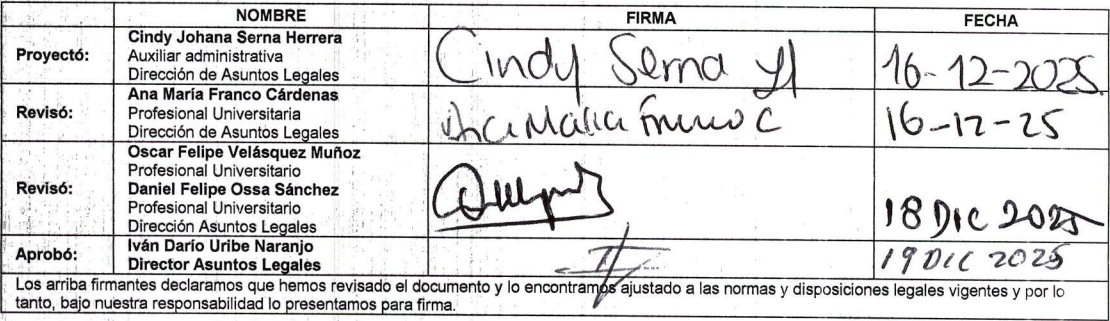 NOMBRE FIRMA FECHA
Proyectó: Cindy Johana Serna Herrera
Auxiliar administrativa
Dirección de Asuntos Legales
Cindy Serna H 16-12-2025
Revisó: Ana María Franco Cárdenas
Profesional Universitaria
Dirección de Asuntos Legales
Ana Maria Franco C 16-12-25
Revisó: Oscar Felipe Velásquez Muñoz
Profesional Universitario
Daniel Felipe Ossa Sánchez
Profesional Universitario
Dirección Asuntos Legales
18 DIC 2025
Aprobó: Iván Darío Uribe Naranjo
Director Asuntos Legales
19 DIC 2025
Los arriba firmantes declaramos que hemos revisado el documento y lo encontramos ajustado a las normas y disposiciones legales vigentes y por lo
tanto, bajo nuestra responsabilidad lo presentamos para firma.